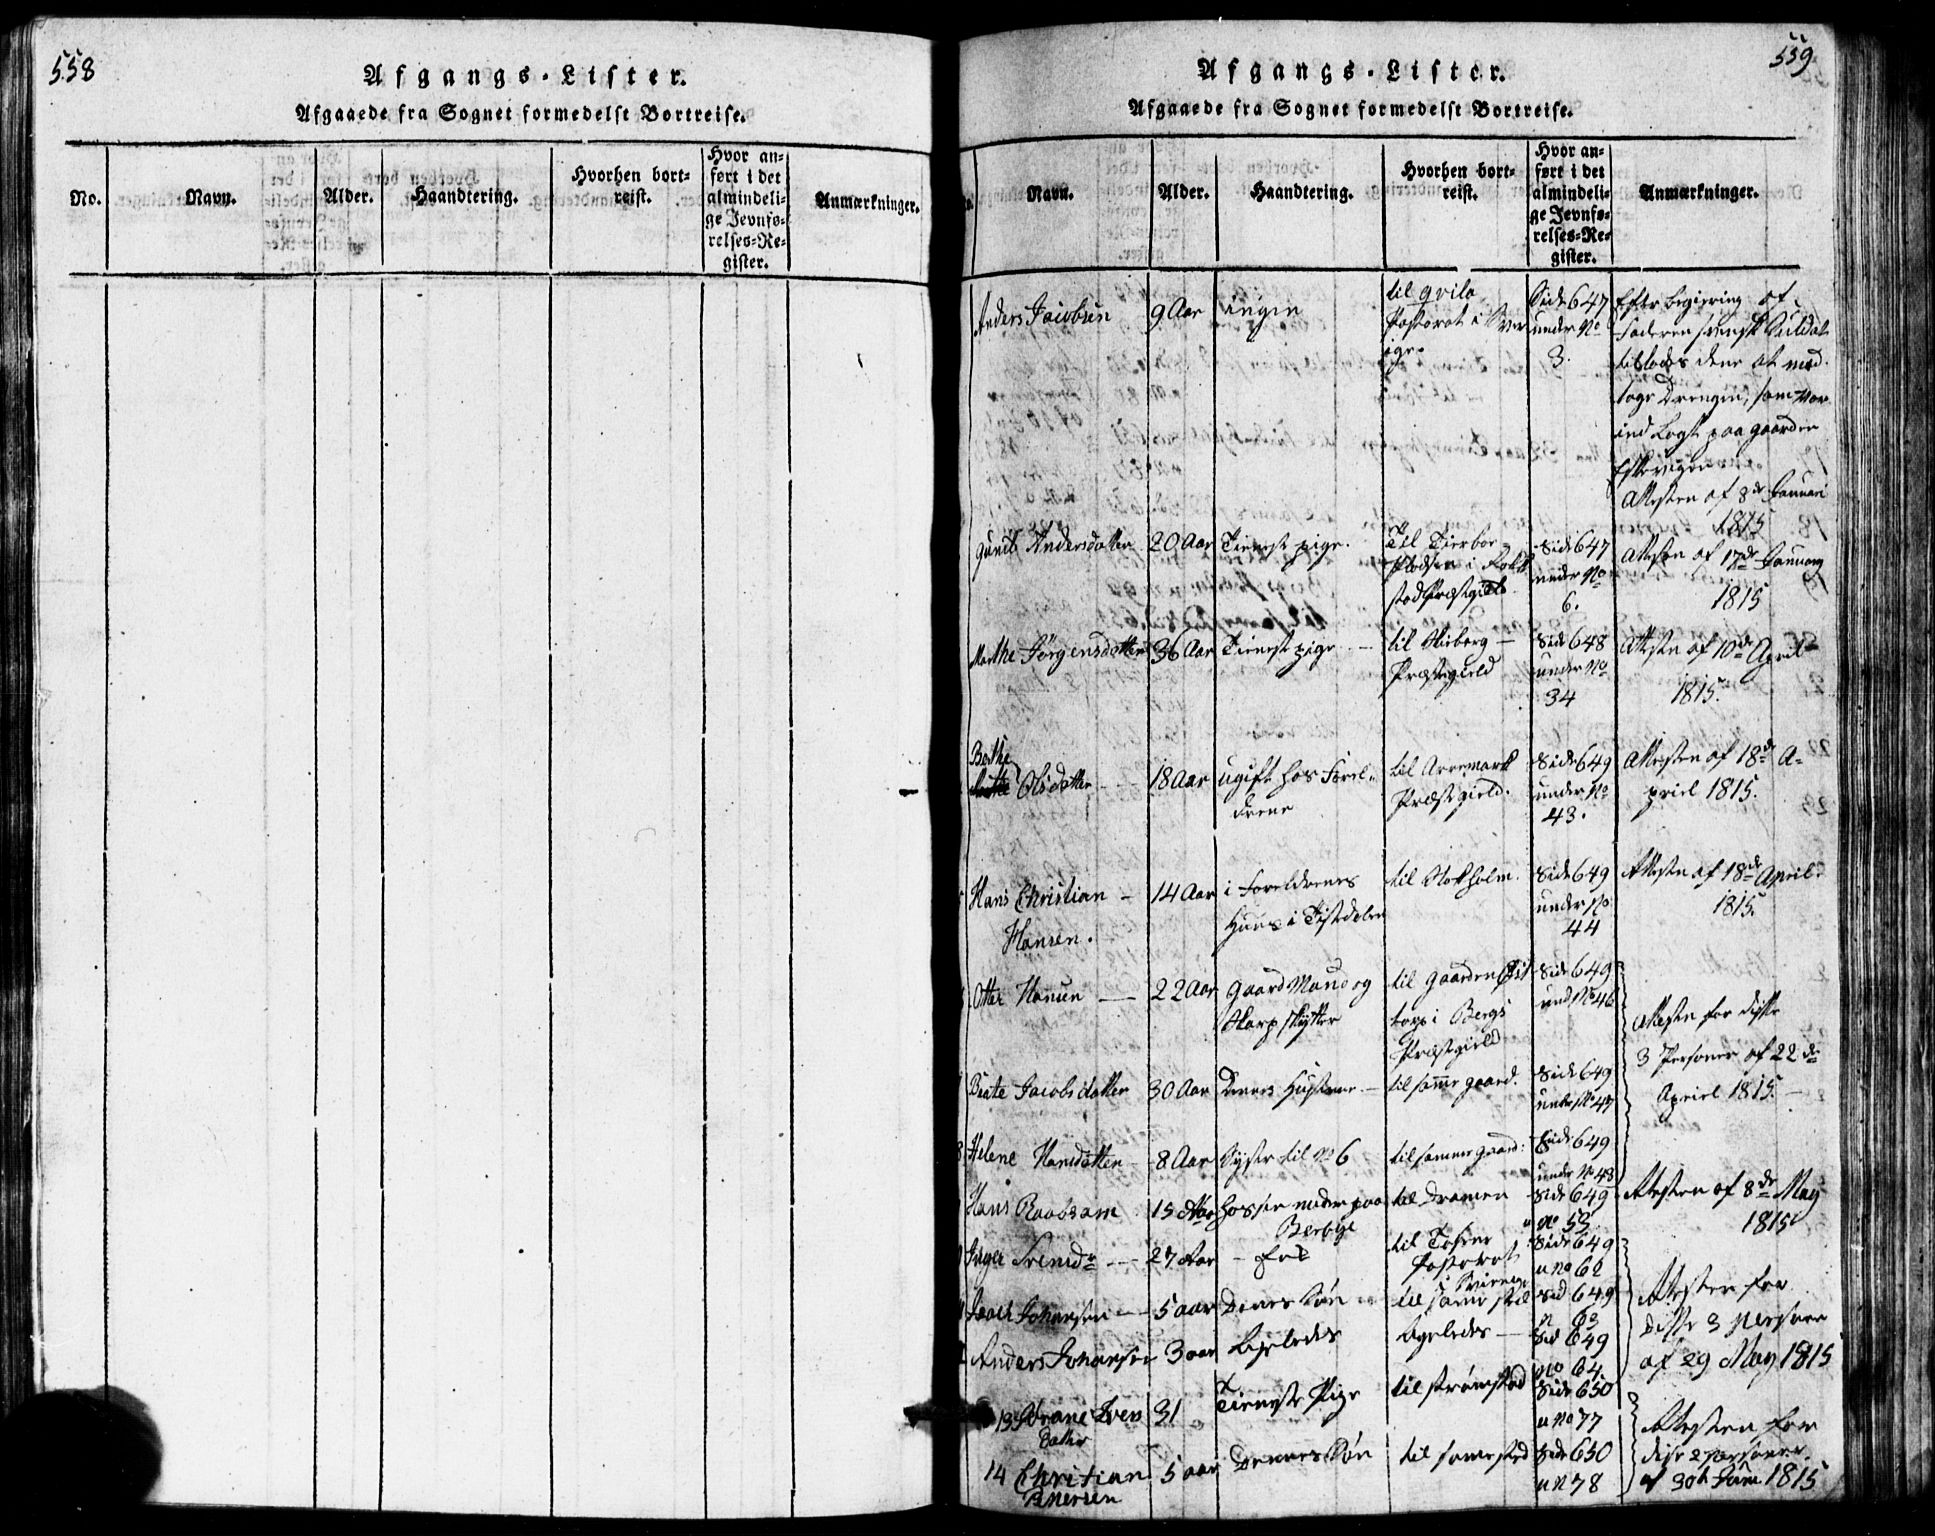 558
Afgangs-Lister.
Afgaaede fra Sognet formedelst Bortreise.
No.
Navn.
Alder.
Haandtering.
Hvorhen bort-
reist.
Hvor an-
ført i det
almindeli-
ge Jevnfø-
relses-Re-
gister.
Anmærkninger.
559
Afgangs-Lister.
Afgaaede fra Sognet formedelst Bortreise.
Navn.
Alder.
Haandtering.
Hvorhen bort-
reist.
Hvor an-
ført i det
almindeli-
ge Jevnfø-
relses-Re-
gister.
Anmærkninger.
Anders Jacobsen
9 Aar
ingen
til Qvila
Pastorat i Sver
ige
Side 647
under No
3.
Efter begiering af
Faderen svensk Suldat
tillodes dene at med
tage Drengen, som var
ind Lagt paa gaarden
Attesten af 8de Januari
1815
Andersdatter
20 Aar
Tieneste pige.
Til
Pladsen i
stad Præstegield.
Side 647
under No
6.
Attesten af 17de January
1815
Marthe Jørgensdatter
36 Aar
Tieneste pige
til Skieberg
Præstegield
Side 648
under No
34
Attesten af 10de April
1815.
Berthe
Olsdatter
18 Aar
ugift hos Forel-
drene
til Arremark
Præstegield.
Side 649
under No
43.
Attesten af 18de A-
priel 1815.
Hans Christian
Hansen.
14 Aar
i Foreldrenes
Huus i Tistedalen
til Stokholm.
Side 649
under No
44
Attesten af 18de April
1815.
Otter Hansen
22 Aar
Gaard Mand og
Skarpskytter
til Gaarden
i Bergs
Præstegield
Side 649
und. No 46
Attesten for disse
3 Personer af 22de
Apriel 1815.
Beate Jacobsdatter
30 Aar
Denes Hustrue
til same gaard.
Side 649
under No 47
8
Helene Hansdatter
8 Aar
Syster til No 6
til samme gaard.
Side 649
under No 48
Hans Raabsam
15 Aar
hos sin moder paa
Berbye
til Dramen
Side 649
No 53
Attesten af 8de May
1815
Inger Svensdr
27 Aar
til
Pastorat
i Sverrig
Side 649
u No 62
Attesten for
disse 3 Personer
af 29 May 1815
Isach Johansen
5 aar
Denes Søn
til same sted
Sid 649
N 63
Anders Johansen
3 aar
ligeledes
ligeledes
Sid 649
No 64
13
Iver
datter
31
Tieneste Pige
til Strømstad
Side 650
u No 77
Attesten for
disse 2 Personer
af 30te Juni 1815
14
Christian
Pettersen
5 aar
Dennes Søn
til same sted
Side 650
u N 78